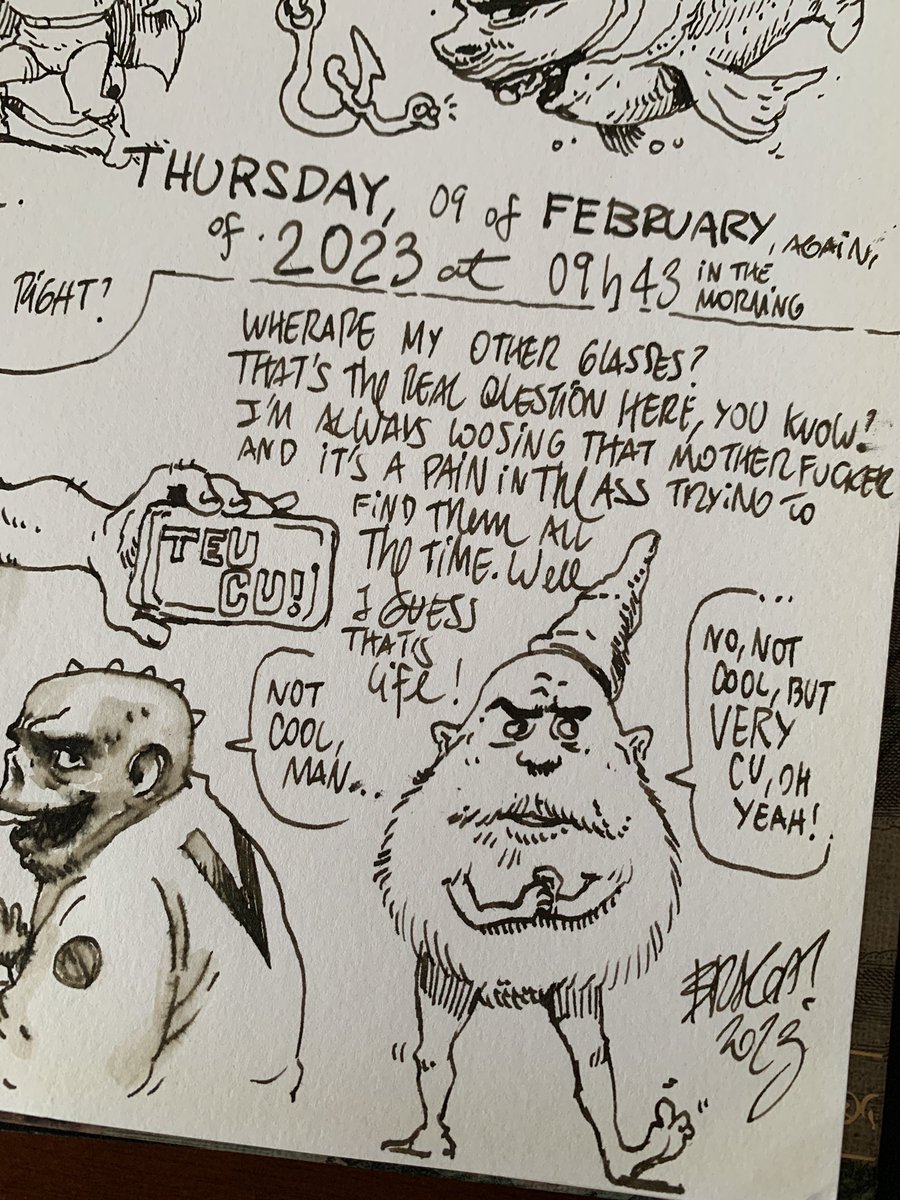 THURSDAY, 09 of FEBRUARY, AGAIN,
of. 2023 at 09h43 IN THE
MORNING
RIGHT?
WHERARE MY OTHER GLASSES?
THAT'S The REAL QUESTION HERE, YOU KNOW?
I'M ALWAYS LOOSING THAT MOTHERFUCKER
AND IT'S A PAIN IN The ASS TRYING To
FIND Them ALL
The TIME. Well
I GUESS
THAT'S
Life!
TEU
CU!
NOT
COOL,
MAN...
...
NO, NOT
COOL, BUT
VERY
CU, OH
YEAH!
2023